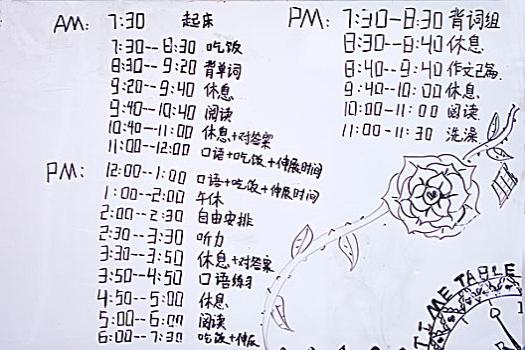 AM: 7:30 起床
7:30--8:30 吃饭
8:30--9:20 背单词
9:20--9:40 休息
9:40--10:40 阅读
10:40--11:00 休息+对答案
11:00--12:00 口语+吃饭+伸展时间
PM: 12:00--1:00 口语+吃饭+伸展时间
1:00--2:00 午休
2:00--2:30 自由安排
2:30--3:30 听力
3:30--3:50 休息+对答案
3:50--4:50 口语练习
4:50--5:00 休息
5:00--6:00 阅读
6:00--7:30 吃饭+伸展
PM: 7:30--8:30 背词组
8:30--8:40 休息
8:40--9:40 作文2篇
9:40--10:00 休息
10:00--11:00 阅读
11:00--11:30 洗澡
TIME TABLE